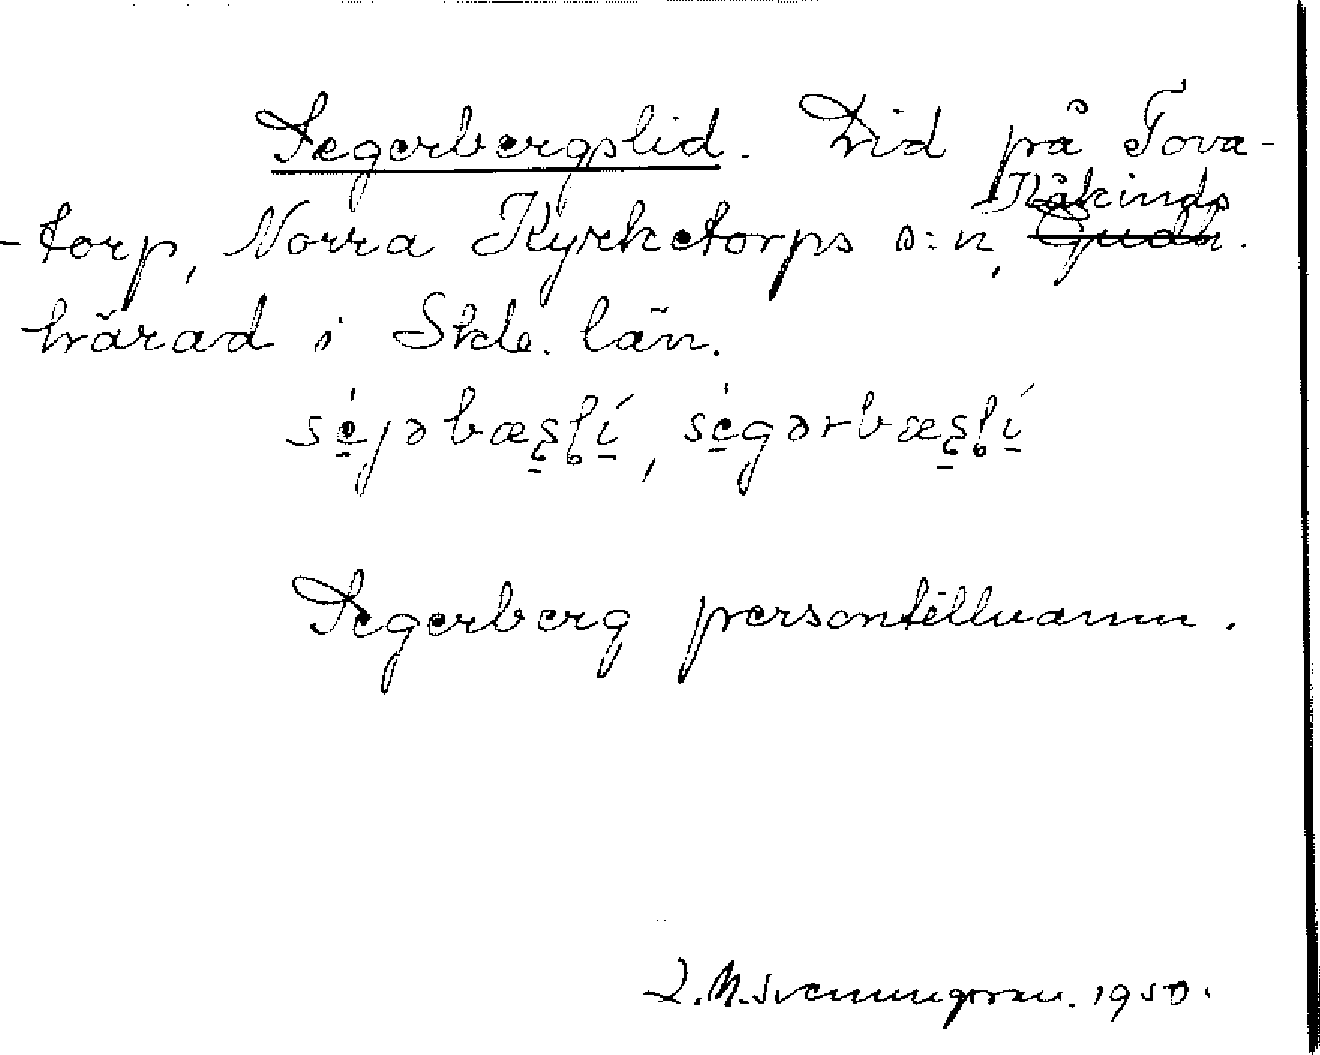 Segerbergslid. Lid på Tova-
-torp, Norra Kyrketorps s:n, Kåkinds
härad i Skbs. län.
séjəbæʂlí, ségərbæʂlí
Segerberg persontillnamn.
L.M. Svenungsson. 1950.